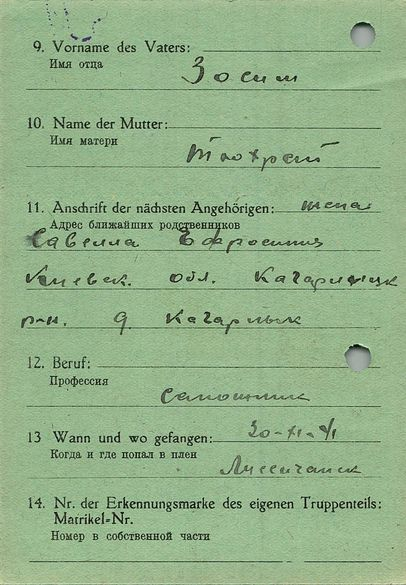 9. Vorname des Vaters:
Имя отца
Зосим
10. Name der Mutter:
Имя матери
11. Anschrift der nächsten Angehörigen: жена
Адрес ближайших родственников
Савелла Ефросиния
Киевск. обл. Кагарлицк
р-н. д Кагарлык
12. Beruf:
Профессия
Сапожник
13 Wann und wo gefangen: 20-XI-41
Когда и где попал в плен
Лисичанск
14. Nr. der Erkennungsmarke des eigenen Truppenteils:
Matrikel-Nr.
Номер в собственной части